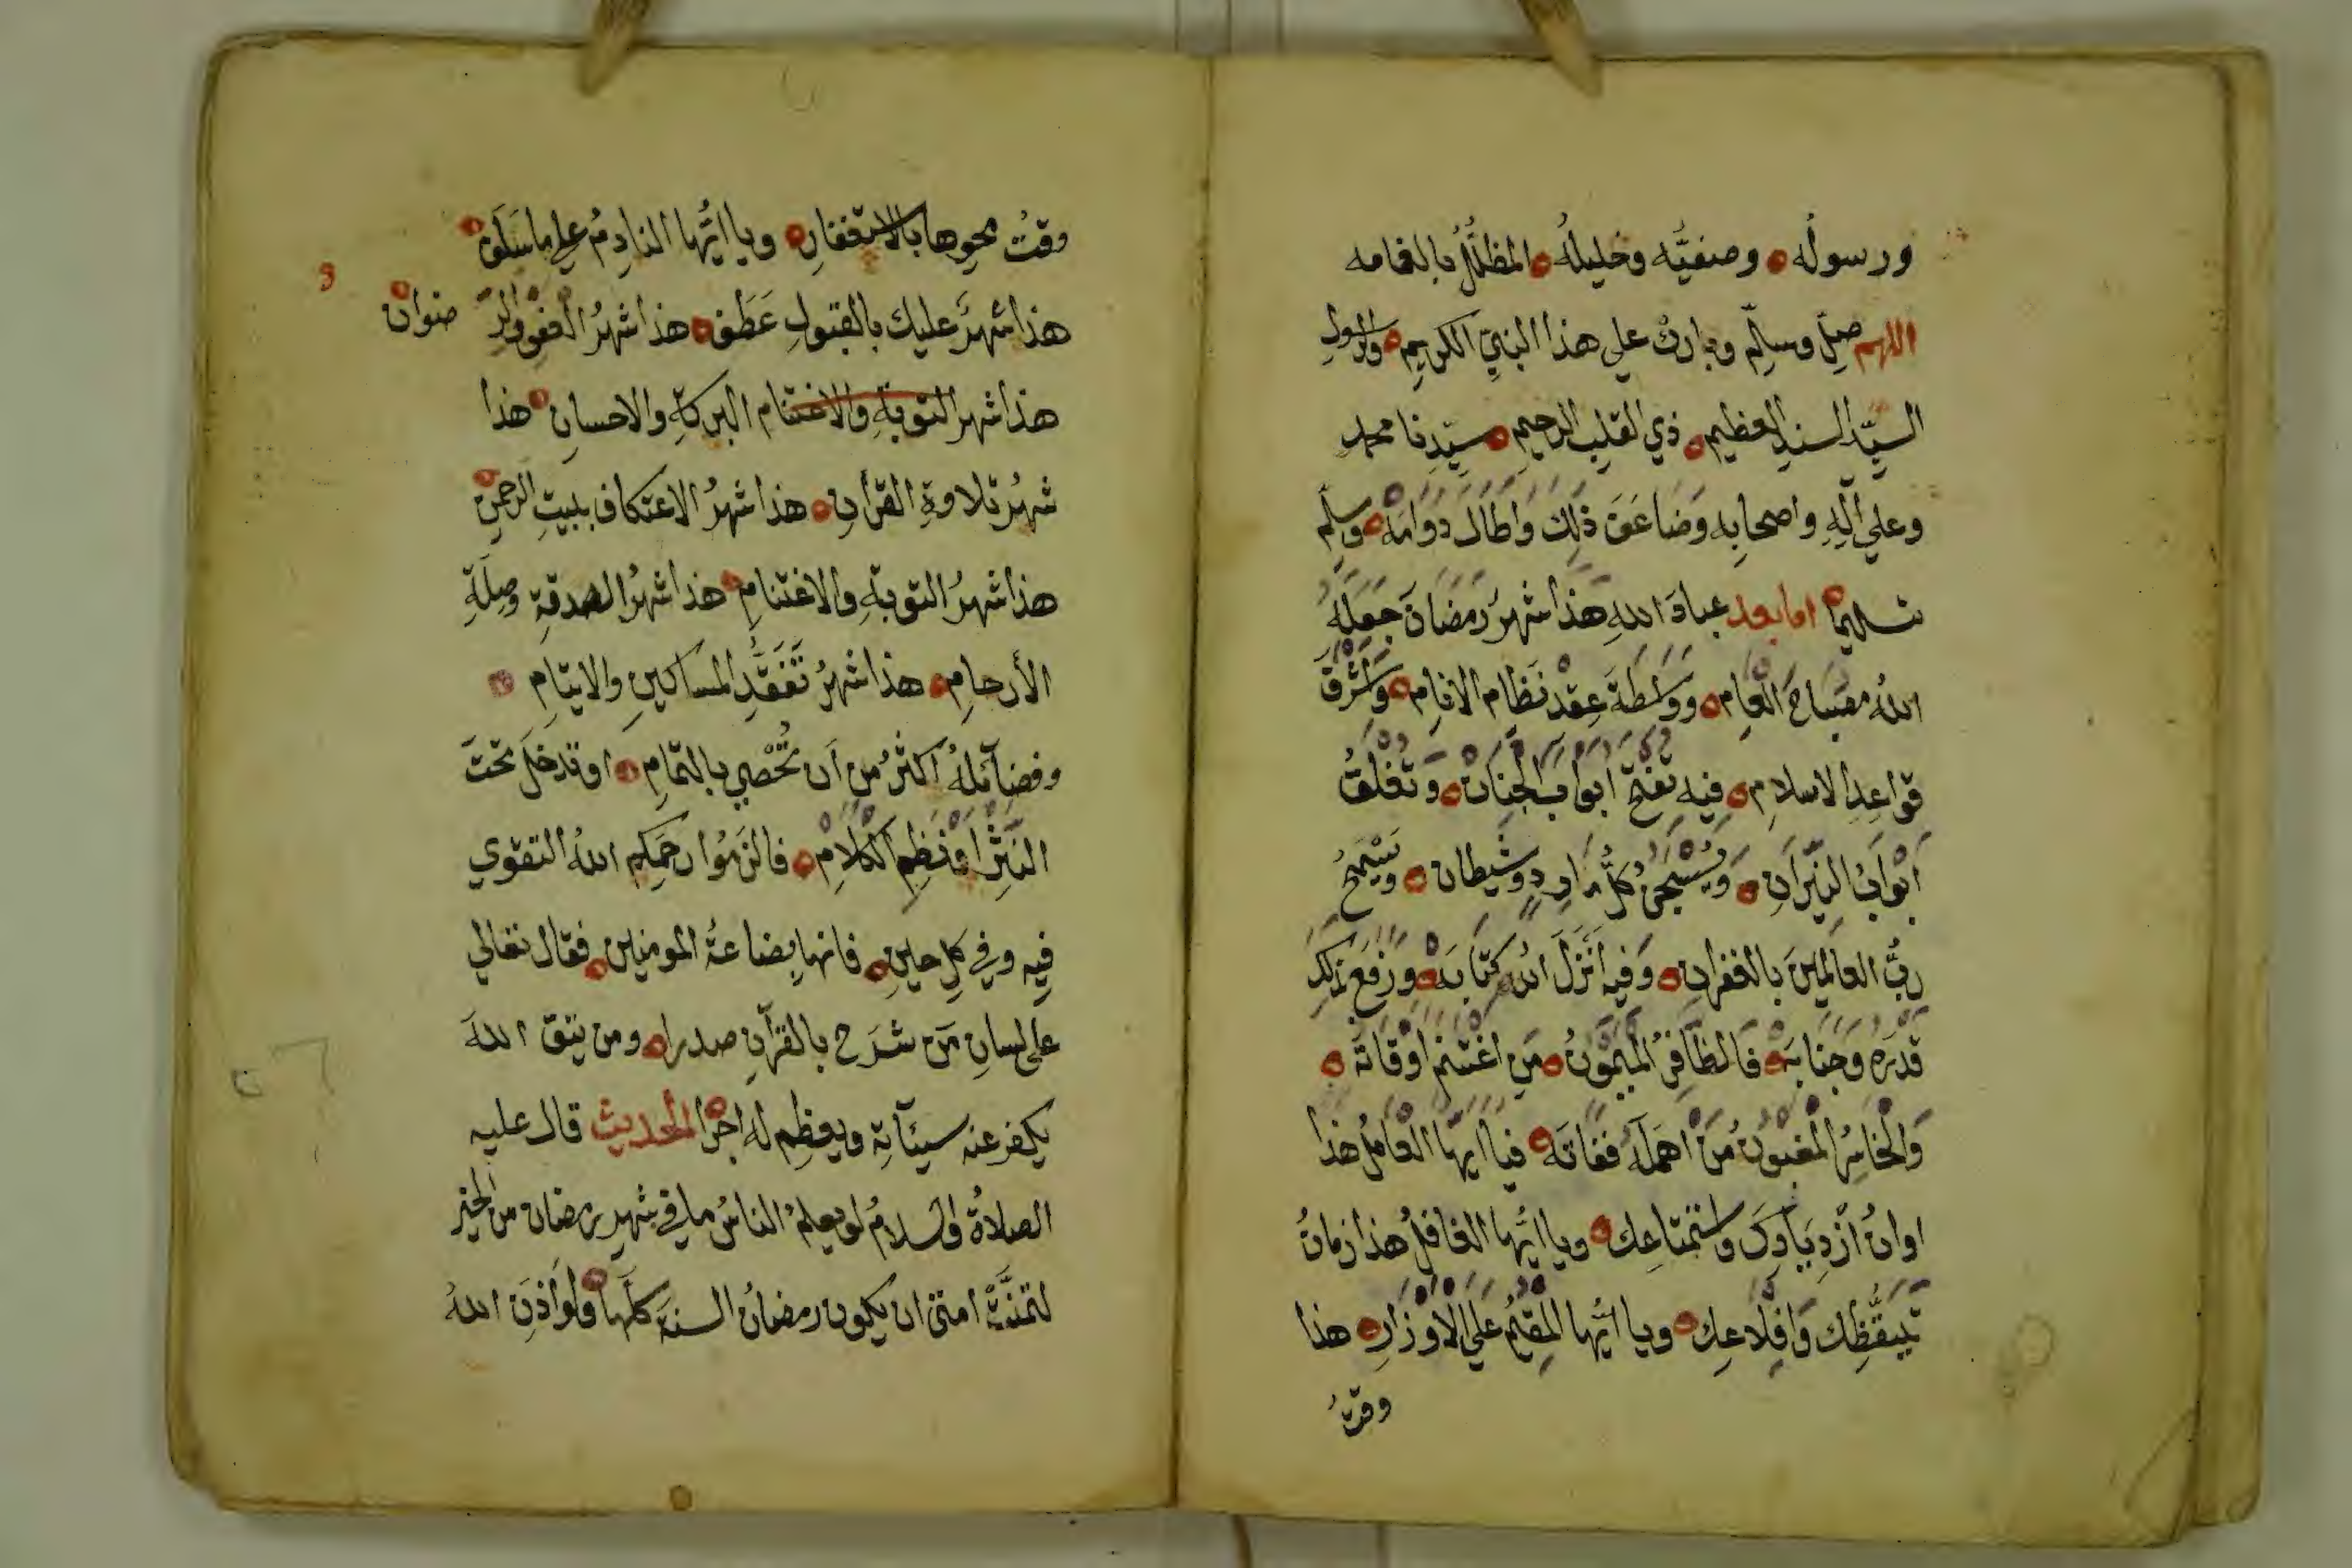 ورسولُه وصفيَّه وخليلهُ المظلَّلُ بالغمامه
اللهم صلِّ وسلِّم وبارك على هذا النبيِّ الكريمِ والرسولِ
السيِّدِ السندِ العظيمِ ذي القلبِ الرحيمِ سيّدِنا محمد
وعلي آلِهِ واصحابِه وَضَاعَفَ ذلِكَ وَاَطَالَ دَوَامَهْ وسلِّم
تسليما اما بعد عبادَ اللهِ هَذَا شهرُ رَمَضَانَ جَعَلَهُ
اللهُ مصْبَاحَ الْعَامِ وَوَاسِطَةَ عِقْدِ نَظَام الانامِ وَاشْرَقَ
قوَاعِدِ الاسلامِ فيهِ تفتحُ ابْوَابَ الْجِنَانْ وَتُغْلَقُ
اَبْوَابُ النِّيْرَانِ وَيُسْجَنُ كُلُّ مَارِدٍ وشَيْطان وَيَسْمَحُ
ربُّ العالَمِينَ بالغفرانِ وَفيهِ اَنْزَلَ اللهُ كِتَابَهْ وَرَفعَ بَذلِكَ
قَدْرَهُ وَجَنَابَهْ فَالظَّافِرُ المَيْمُوْنُ مَنِ اغْتَنَم اوْقَاتَهْ
وَالْخَاسِرُ الْمَغبُونُ مَنْ اَهْمَلَهُ فَفَاتَهْ فيَا اَيُّهَا الْعَامِلُ هَذا
اوانُ ازْدِيَادِكَ وَاسْتِمْتَاعِك ويا ايُّهَا الغَافلُ هَذا زمانُ
تَيَقُّظِكَ وَاقْلَاعِك ويا ايُّها الْمقِيْمُ عَلَى الْاوْزَارِ هذا
وقتُ
وقتُ محوِها بالاستغفارِ ويا ايُّها النادِمُ علي ما سَلَفْ
هذا شهرٌ عليك بالقبولِ عَطَفْ هذا شهرُ العفوِ والرِّ ضوانْ
هذا شهر التوبةِ والاغتنام البركةِ والاحسانِ هذا
شهرُ تلاوةِ القرأنِ هذا شهرُ الاعتكاف ببيتِ الرحمنِ
هذا شهرُ التوبةِ والاغتنامِ هذا شهرُ الصدقةِ وصِلَةِ
الأرحامِ هذا شهرُ تَفَقُّدِ المساكينِ والايتامِ
وفضآئلهُ اكثرُ من اَن تُحْصي بالتمامِ او تدخلَ تحتَ
النَثْرِ اَوْ نَظْمِ الكَلَامِ فالزمُوا رحمَكم اللهُ التقوي
فيِه وفي كلِ حينٍ فانها بضاعةُ المومنين فقال تعالي
على لسانِ مَن شَرَح بالقرآنِ صدرا ومن يتق اللهَ
يكفر عنه سيئآتهِ ويعظِم له اجرًا الحديث قال عليه
الصلاةُ والسلامُ لو يعلمُ الناسُ ما في شهرِ رمضان من الخير
لتمنَّتْ امتي ان يكون رمضانُ السنةَ كلَّها ولو اَذِنَ اللهُ